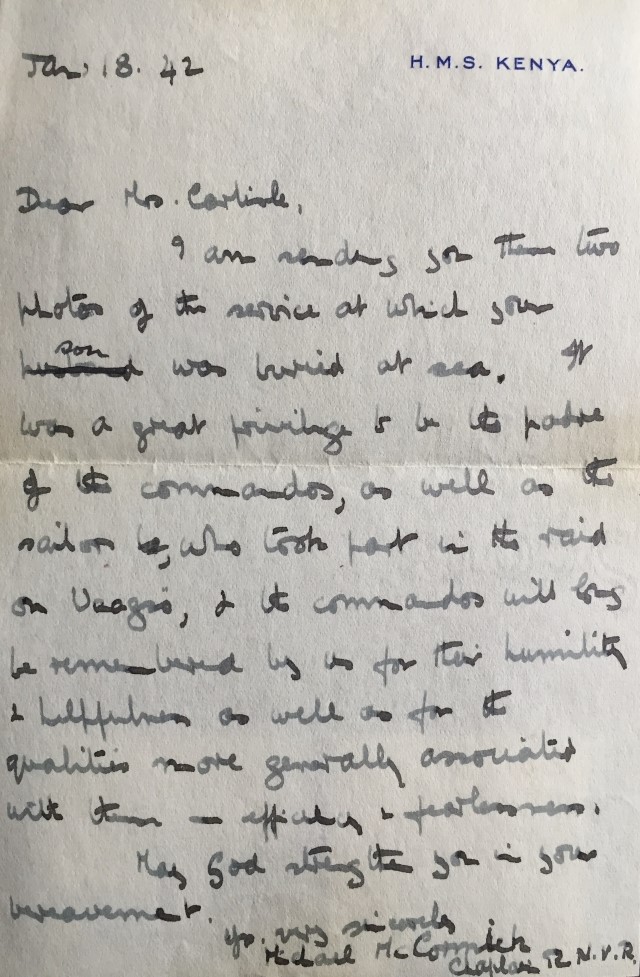 Jan. 18. 42
H.M.S. KENYA.
Dear Mrs. Carlisle,
I am sending you these two
photos of the service at which your
husband son was buried at sea. It
was a great privilege to be the padre
of the commandos, as well as the
sailors, who took part in the raid
on Vaagso, & the commandos will long
be remembered by us for their humility
& helpfulness as well as for the
qualities more generally associated
with them — efficiency & fearlessness.
May God strengthen you in your
bereavement.
Yrs. very sincerely
Michael McCormick
Chaplain R.N.V.R.